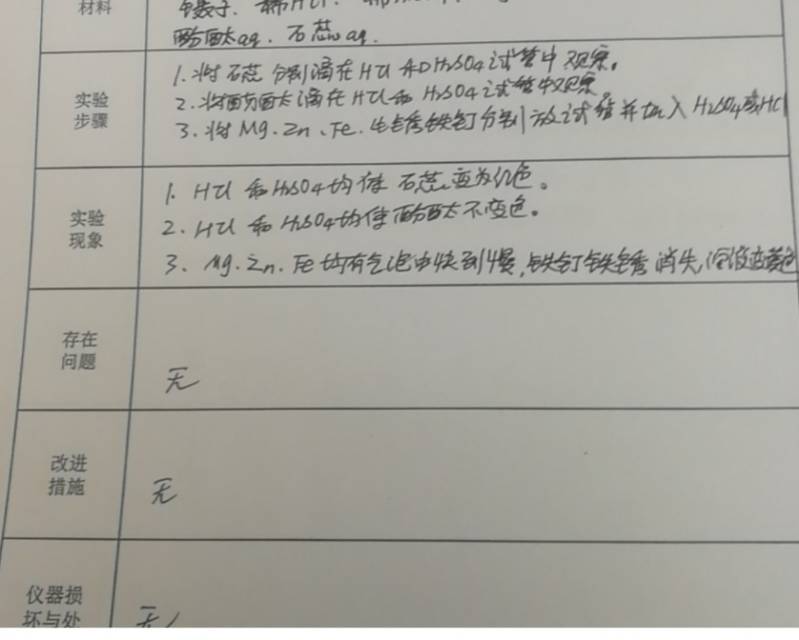 材料
镊子. 稀HCl.
酚酞aq. 石蕊aq.
实验
步骤
1. 将石蕊分别滴在HCl和H2SO4试管中观察。
2. 将酚酞滴在HCl和H2SO4试管中观察。
3. 将Mg.Zn、Fe.生锈铁钉分别放试管并加入H2SO4或HCl
实验
现象
1. HCl和H2SO4均使石蕊变为红色。
2. HCl和H2SO4均使酚酞不变色。
3. Mg.Zn.Fe均有气泡由快到慢,铁钉铁锈消失,溶液变黄色
存在
问题
无
改进
措施
无
仪器损
坏与处
无